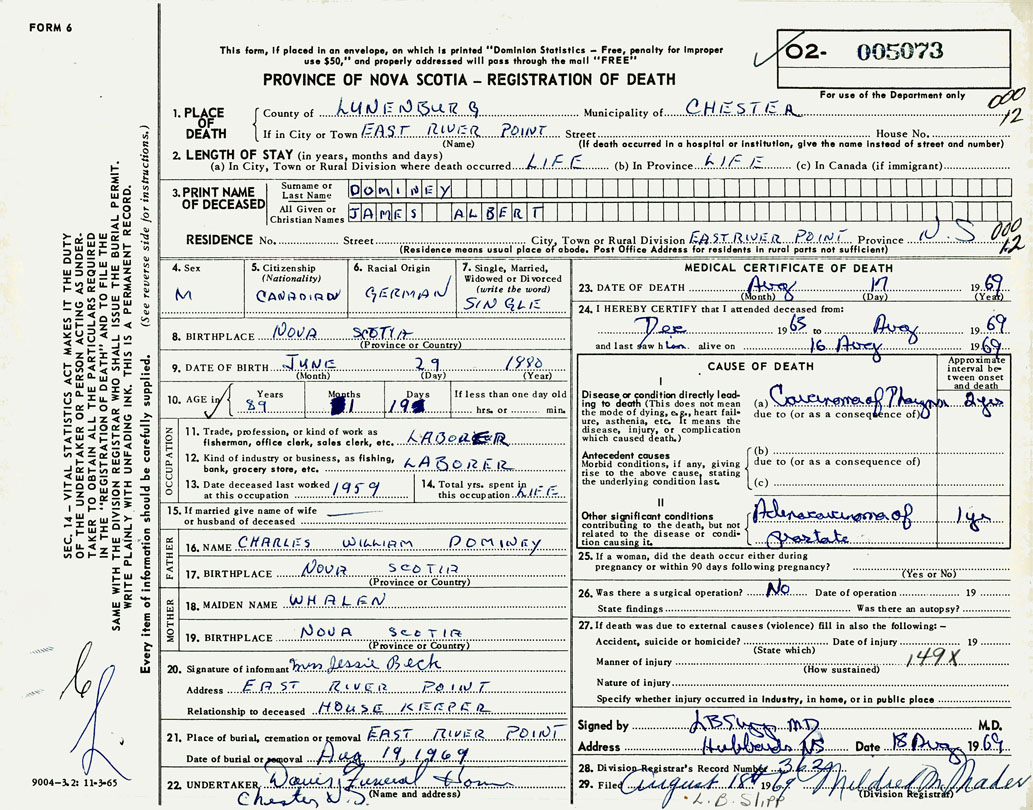 FORM 6
This form, if placed in an envelope, on which is printed "Dominion Statistics – Free, penalty for improper
use $50," and properly addressed will pass through the mail "FREE"
PROVINCE OF NOVA SCOTIA – REGISTRATION OF DEATH
02- 005073
For use of the Department only
000
12
1. PLACE OF DEATH
County of LUNENBURG Municipality of CHESTER
If in City or Town EAST RIVER POINT Street House No.
(Name) (If death occurred in a hospital or institution, give the name instead of street and number)
2. LENGTH OF STAY (in years, months and days)
(a) In City, Town or Rural Division where death occurred LIFE (b) In Province LIFE (c) In Canada (if immigrant)
3. PRINT NAME OF DECEASED
Surname or Last Name DOMINEY
All Given or Christian Names JAMES ALBERT
RESIDENCE No. Street City, Town or Rural Division EAST RIVER POINT Province N S
000
12
(Residence means usual place of abode. Post Office Address for residents in rural parts not sufficient)
4. Sex
M
5. Citizenship
(Nationality)
CANADIAN
6. Racial Origin
GERMAN
7. Single, Married,
Widowed or Divorced
(write the word)
SINGLE
8. BIRTHPLACE NOVA SCOTIA
(Province or Country)
9. DATE OF BIRTH JUNE 29 1880
(Month) (Day) (Year)
10. AGE in
Years Months Days If less than one day old
89 1 19 hrs. or min.
OCCUPATION
11. Trade, profession, or kind of work as
fisherman, office clerk, sales clerk, etc. LABORER
12. Kind of industry or business, as fishing,
bank, grocery store, etc. LABORER
13. Date deceased last worked
at this occupation 1959
14. Total yrs. spent in
this occupation LIFE
15. If married give name of wife
or husband of deceased
FATHER
16. NAME CHARLES WILLIAM DOMINEY
17. BIRTHPLACE NOVA SCOTIA
(Province or Country)
MOTHER
18. MAIDEN NAME WHALEN
19. BIRTHPLACE NOVA SCOTIA
(Province or Country)
20. Signature of informant Mrs Jessie Beck
Address EAST RIVER POINT
Relationship to deceased HOUSE KEEPER
21. Place of burial, cremation or removal EAST RIVER POINT
Date of burial or removal Aug 19, 1969
22. UNDERTAKER Davis Funeral Home
Chester N.S. (Name and address)
MEDICAL CERTIFICATE OF DEATH
23. DATE OF DEATH Aug 17 1969
(Month) (Day) (Year)
24. I HEREBY CERTIFY that I attended deceased from:
Dec 1965 to Aug 1969
and last saw him alive on 16 Aug 1969
CAUSE OF DEATH
Approximate
interval be-
tween onset
and death
I
Disease or condition directly lead-
ing to death (This does not mean
the mode of dying, e.g., heart fail-
ure, asthenia, etc. It means the
disease, injury, or complication
which caused death.)
(a) Carcinoma of Pharynx 2 yrs
due to (or as a consequence of)
Antecedent causes
Morbid conditions, if any, giving
rise to the above cause, stating
the underlying condition last.
(b)
due to (or as a consequence of)
(c)
II
Other significant conditions
contributing to the death, but not
related to the disease or condi-
tion causing it.
Adenocarcinoma of 1 yr
prostate
25. If a woman, did the death occur either during
pregnancy or within 90 days following pregnancy?
(Yes or No)
26. Was there a surgical operation? No Date of operation 19
State findings Was there an autopsy?
27. If death was due to external causes (violence) fill in also the following: –
Accident, suicide or homicide? Date of injury 19
(State which)
Manner of injury 149X
(How sustained)
Nature of injury
Specify whether injury occurred in industry, in home, or in public place
Signed by LB Slipp M.D. M.D.
Address Hubbards NS Date 18 Aug 1969
28. Division Registrar's Record Number
29. Filed August 18th 1969 Mildred M. Mader
L. B. SLIPP (Division Registrar)
SEC. 14 – VITAL STATISTICS ACT MAKES IT THE DUTY
OF THE UNDERTAKER OR PERSON ACTING AS UNDER-
TAKER TO OBTAIN ALL THE PARTICULARS REQUIRED
IN THE "REGISTRATION OF DEATH" AND TO FILE THE
SAME WITH THE DIVISION REGISTRAR WHO SHALL ISSUE THE BURIAL PERMIT.
WRITE PLAINLY WITH UNFADING INK. THIS IS A PERMANENT RECORD.
Every item of information should be carefully supplied. (See reverse side for instructions.)
9004-3.2: 11-3-65